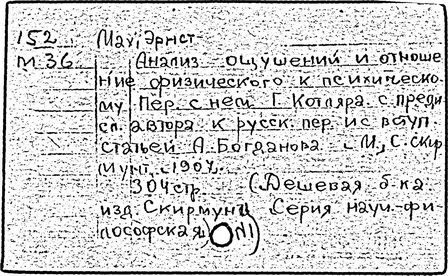 152 Мах, Эрнст
М 36. Анализ ощущений и отноше
ние физического к психическо
му Пер. с нем. Г. Котляра с преди
сл. автора к русск. пер. и с вступ.
статьей А. Богданова. М., С. Скир
мунт, 1907.
304 стр. (Дешевая б-ка
изд. Скирмунт Серия науч.-фи
лософская, №1)